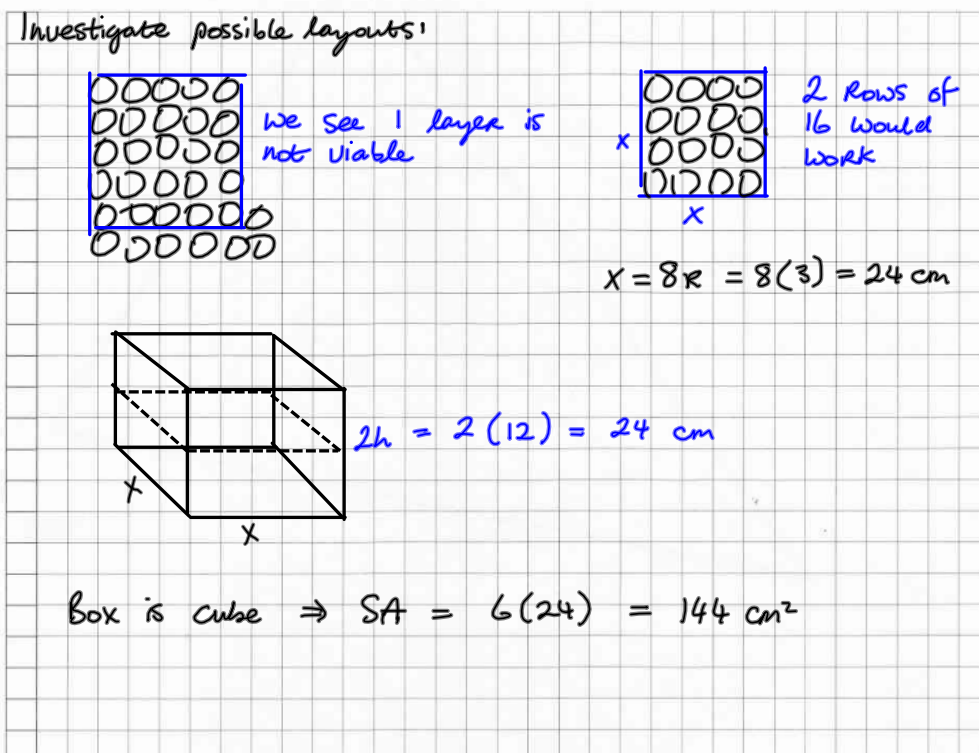 Investigate possible layouts:
we see 1 layer is
not viable
2 Rows of
16 would
work
x
x
x = 8R = 8(3) = 24 cm
2h = 2(12) = 24 cm
x
x
Box is cube ⇒ SA = 6(24) = 144 cm²